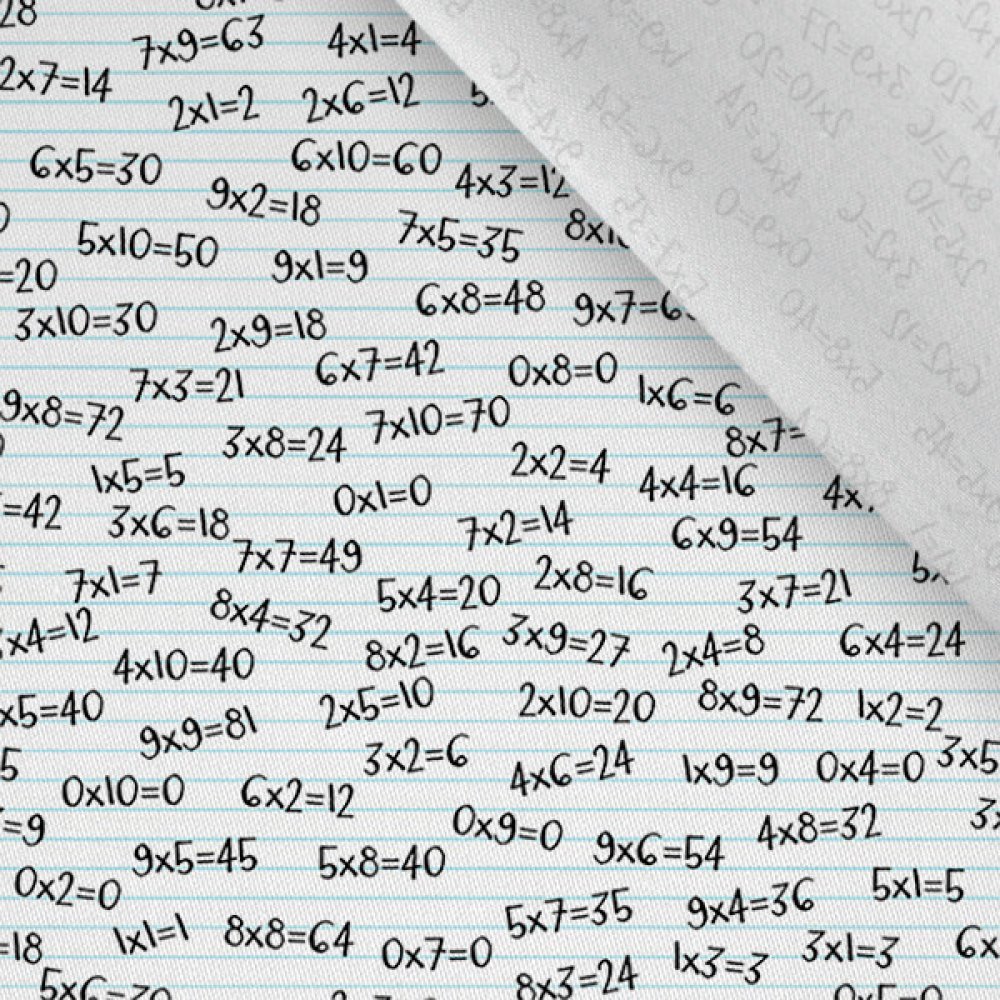 28
7x9=63 4x1=4
2x7=14
2x1=2 2x6=12 5
6x5=30 6x10=60 4x3=12
9x2=18
5x10=50 7x5=35 8x1
=20 9x1=9
3x10=30 2x9=18 6x8=48 9x7=6
7x3=21 6x7=42 0x8=0 1x6=6
9x8=72 3x8=24 7x10=70 8x7=
1x5=5 2x2=4 4x4=16 4x
=42 3x6=18 0x1=0 7x2=14 6x9=54
7x7=49
7x1=7 5x4=20 2x8=16 3x7=21 5x
x4=12 8x4=32 8x2=16 3x9=27 2x4=8 6x4=24
4x10=40
x5=40 2x5=10 2x10=20 8x9=72 1x2=2
9x9=81
5 3x2=6 4x6=24 1x9=9 0x4=0 3x5
0x10=0 6x2=12
=9 0x9=0 9x6=54 4x8=32 3x
9x5=45 5x8=40
0x2=0 5x7=35 9x4=36 5x1=5
=18 1x1=1 8x8=64 0x7=0 1x3=3 3x1=3 6x
5x6=30 8x3=24 0x5=0